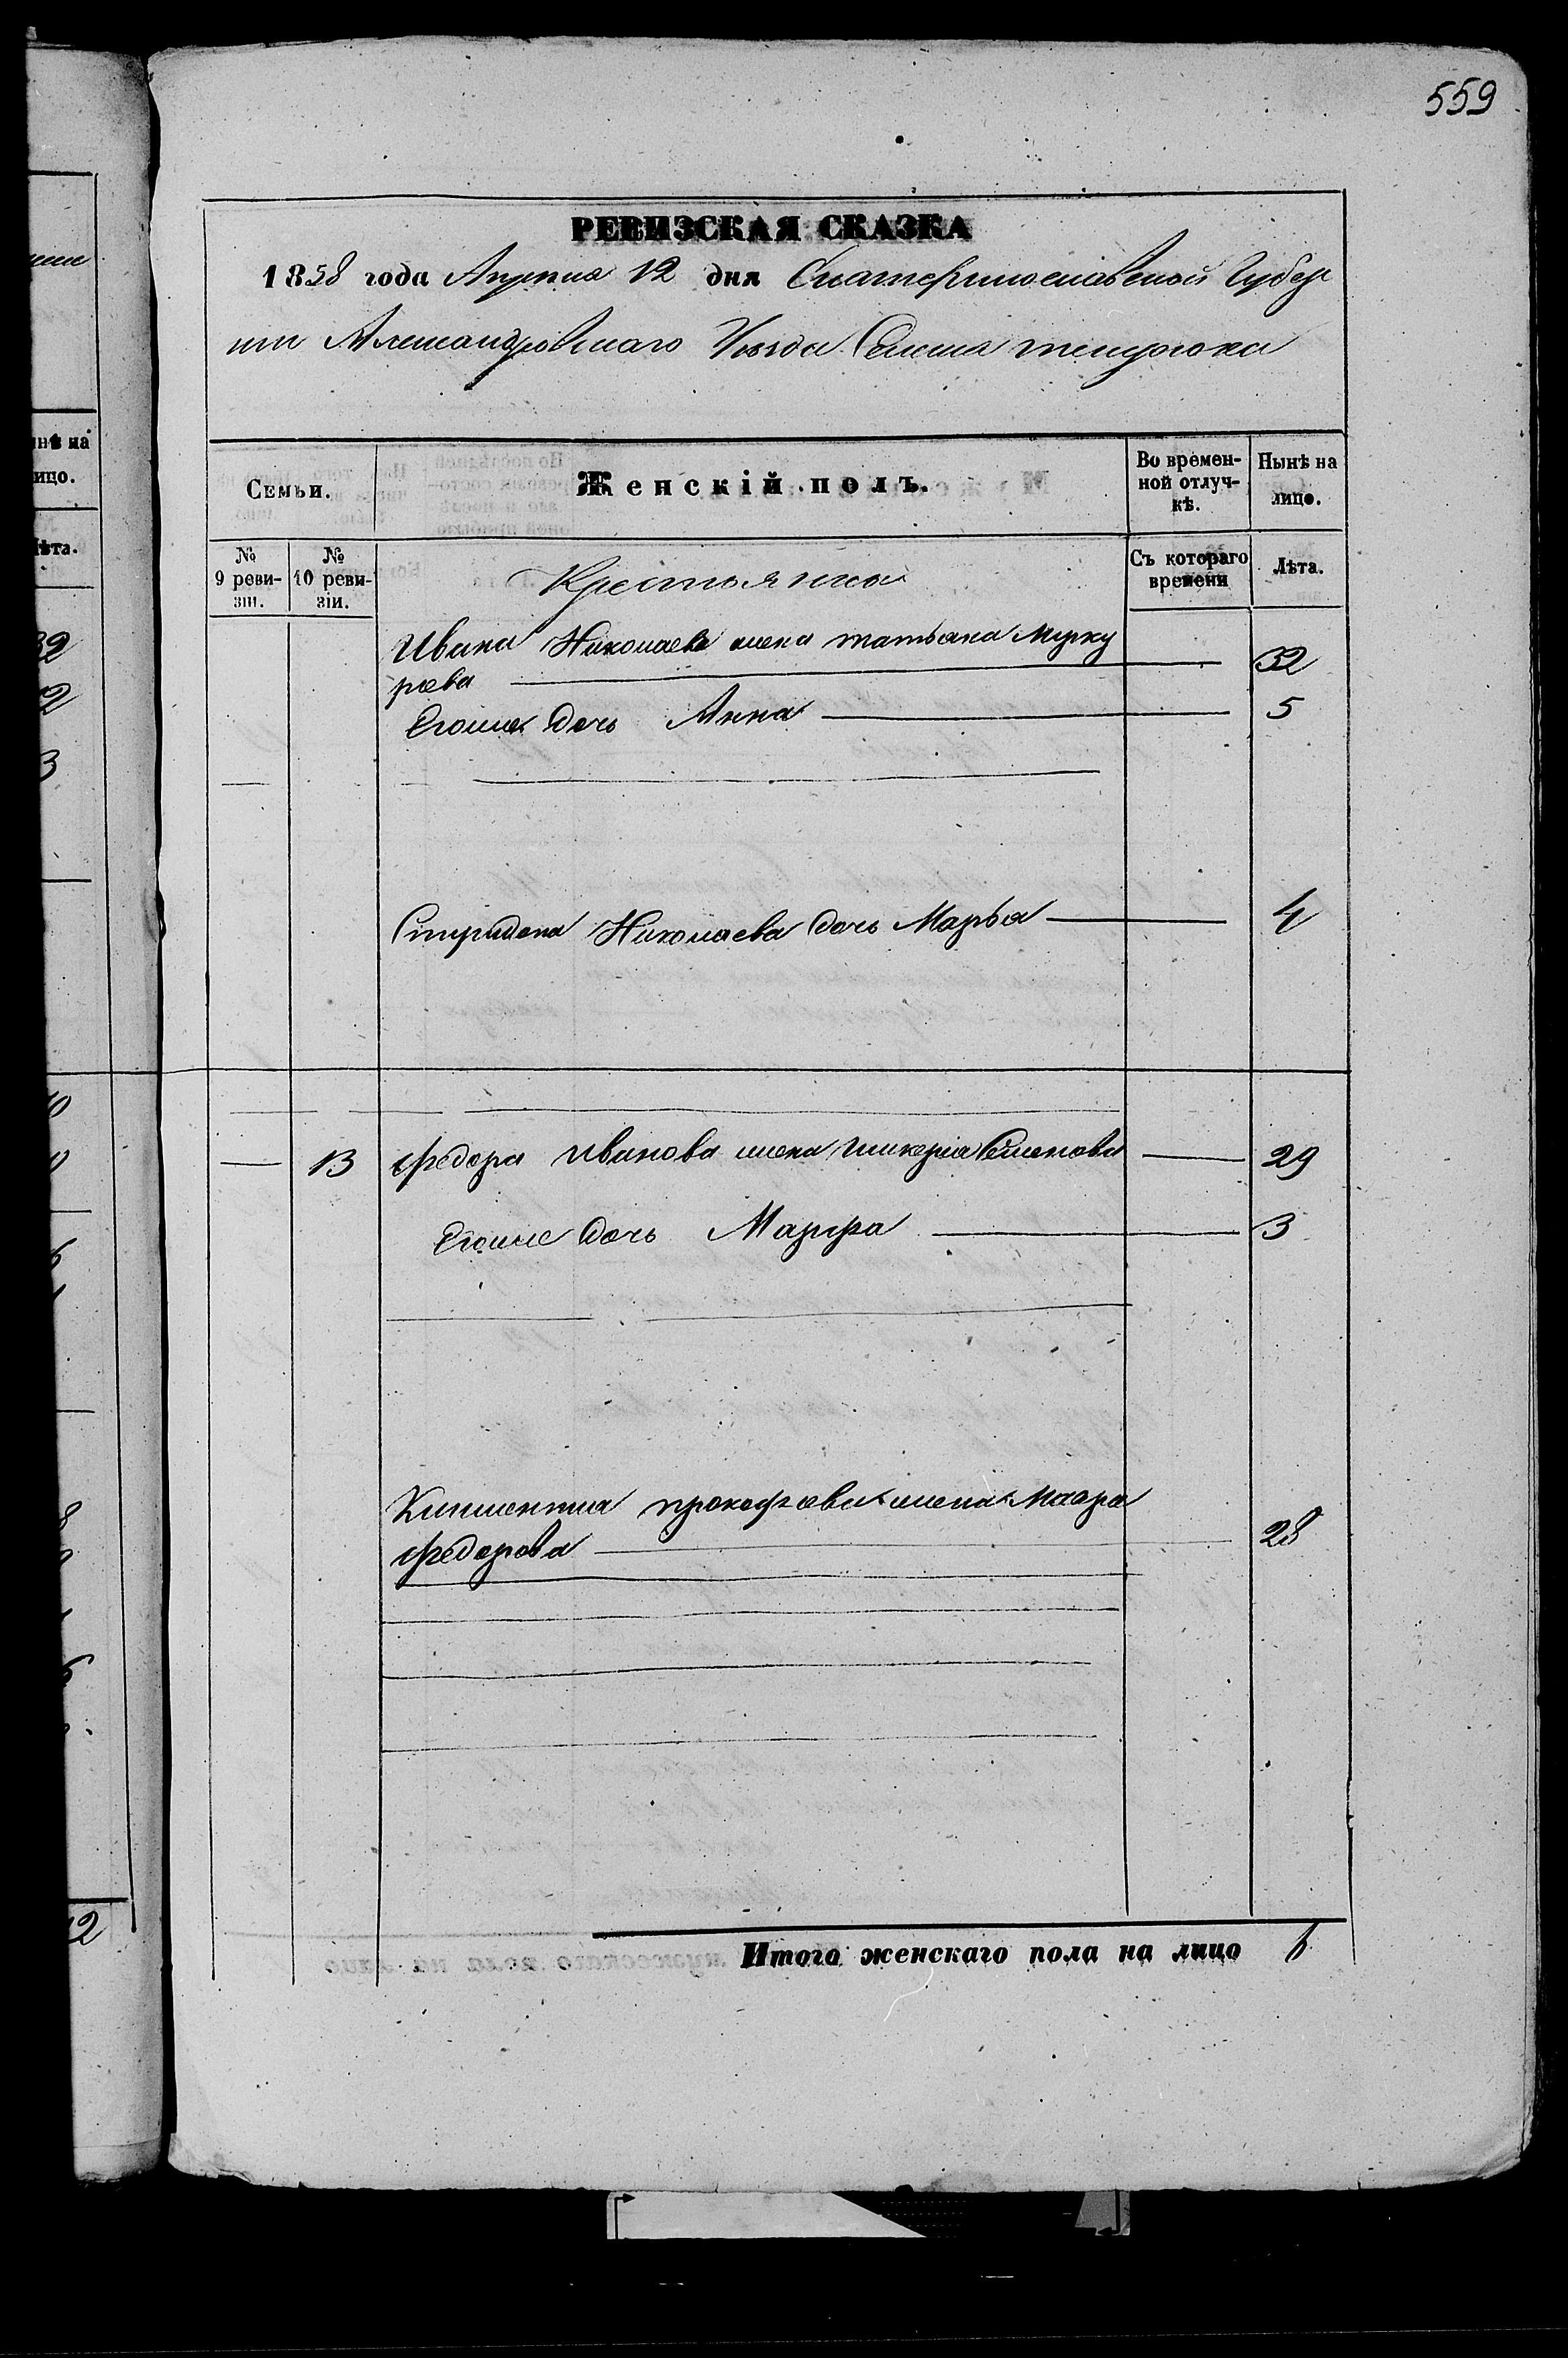 559
РЕВИЗСКАЯ СКАЗКА
1858 года Апреля 12 дня Екатеринославской Губер
нии Александровскаго Уезда Селения
Семьи.
Женскій полъ.
Во времен-
ной отлуч-
кѣ.
Нынѣ на
лицо.
№
9 реви-
зіи.
№
10 реви-
зіи.
Съ котораго
времени
Лѣта.
Крестьянка
Ивана Николаева жена татьяна Мерку
рьева 32
Егоже дочь Анна 5
Спиридона Николаева дочь Марья 4
13 федора Иванова жена гликерія Семенова 29
Егоже дочь Марфа 3
Климентия прокофьева жена Мавра
федорова 28
Итого женскаго пола на лицо 6
нѣ на
ицо.
ѣта.
32
2
3
12